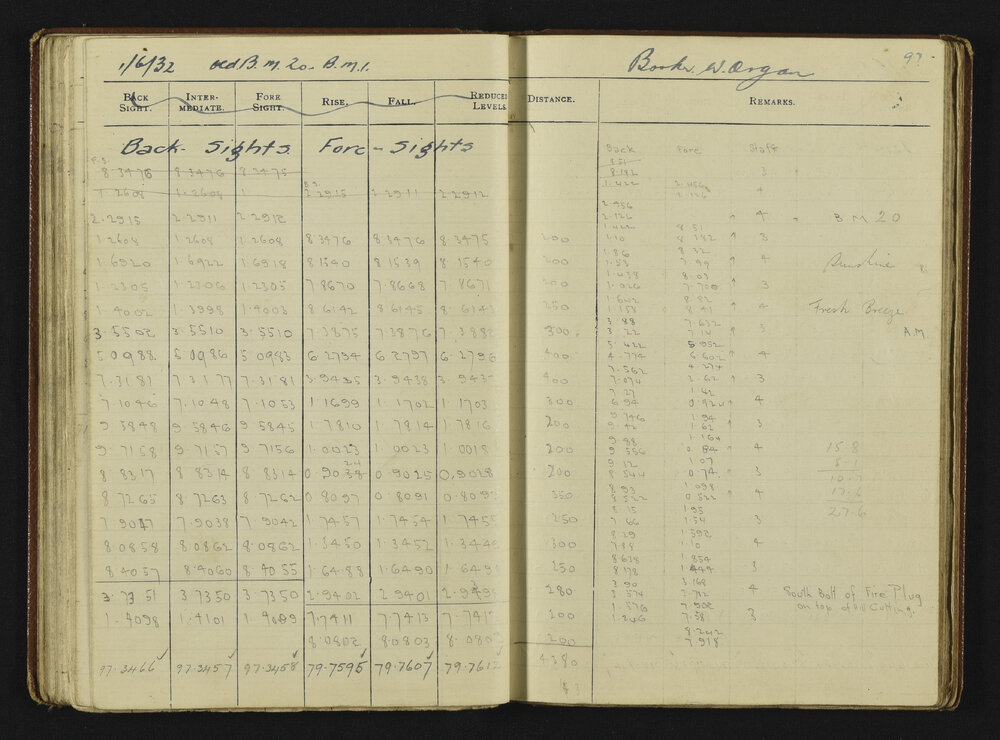 1/6/32 old B.M. 20 - B.M. 1.
BACK SIGHT. INTER-MEDIATE. FORE SIGHT. RISE. FALL. REDUCED LEVELS
Back-Sights Fore-Sights
8.3476 8.3476 8.3475
1.2608 1.2608 1 2.2915 2.2911 2.2912
2.2915 2.2911 2.2912
1.2608 1.2608 1.2608 8.3476 8.3476 8.3475
1.6920 1.6922 1.6918 8.1540 8.1539 8.1540
1.2305 1.2306 1.2305 7.8670 7.8668 7.8671
1.4002 1.3998 1.4003 8.6142 8.6145 8.6143
3.5502 3.5510 3.5510 7.3875 7.3876 7.3882
5.0988 5.0986 5.0983 6.2794 6.2797 6.2796
7.3181 7.3177 7.3181 3.9435 3.9438 3.9437
7.1046 7.1048 7.1053 1.1699 1.1702 1.1703
9.5848 9.5846 9.5845 1.7810 1.7814 1.7816
9.7158 9.7157 9.7156 1.0023 1.0023 1.0018
8.8317 8.8314 8.8314 0.9025 0.9028
8.7265 8.7263 8.7262 0.8097 0.8091 0.8095
7.9047 7.9038 7.9042 1.7457 1.7454 1.7455
8.0858 8.0862 8.0862 1.3450 1.3452 1.344
8.4057 8.4060 8.4055 1.6488 1.6490 1.649
3.7351 3.7350 3.7350 2.9402 2.9401 2.9495
1.4098 1.4101 1.4099 7.7411 7.7413 7.741
8.0802 8.0803 8.080
97.3466 97.3457 97.3458 79.7595 79.7607 79.7612
Booker W. Organ 97
DISTANCE. REMARKS.
Back Fore Staff
8.192 3
1.422 2.456 4
2.456
2.126 4 B M 20
1.422 8.51
200 1.10 8.182 3
1.86 8.32
200 1.53 7.99 4
8.03
200 7.700 3
8.82
250 1.158 8.41 4 Fresh Breeze
3.88 7.632
300 3.22 7.14 3 A.M.
5.422 5.952
400 4.774 6.602 4
7.562 4.274
400 7.074 3.62 3
7.27 1.42
300 6.94 4
9.746 1.94
200 9.42 1.62 3
9.88 1.164
200 9.556 0.84 4 15.8
9.12 1.07 5.1
200 8.544 0.74 3 10.7
8.93 1.098
350 8.522 0.522 4 17.6
8.15 1.95 27.6
250 7.66 1.54 3
8.29 1.592
300 7.88 1.10 4
8.638 1.854
250 8.178 1.444 3
3.90 3.168
280 3.574 2.712 4 South Bolt of Fire Plug
1.576 7.902 on top of Cutting.
200 1.246 7.58 3
8.242
200 7.918
4380